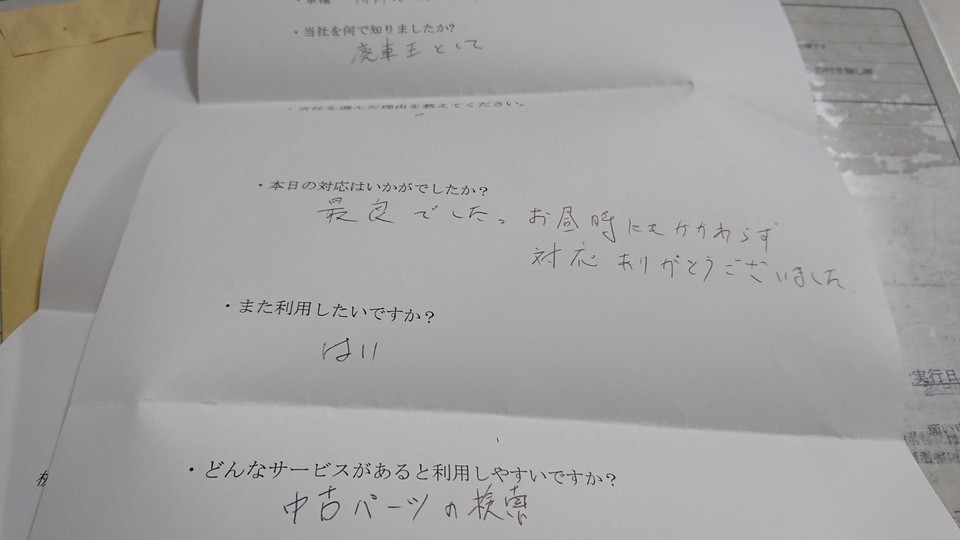 ・車種
・当社を何で知りましたか?
廃車王として
・当社を選んだ理由を教えてください。
・本日の対応はいかがでしたか?
最良でした。お昼時にもかかわらず
対応ありがとうございました
・また利用したいですか?
はい
・どんなサービスがあると利用しやすいですか?
中古パーツの検索
実行日